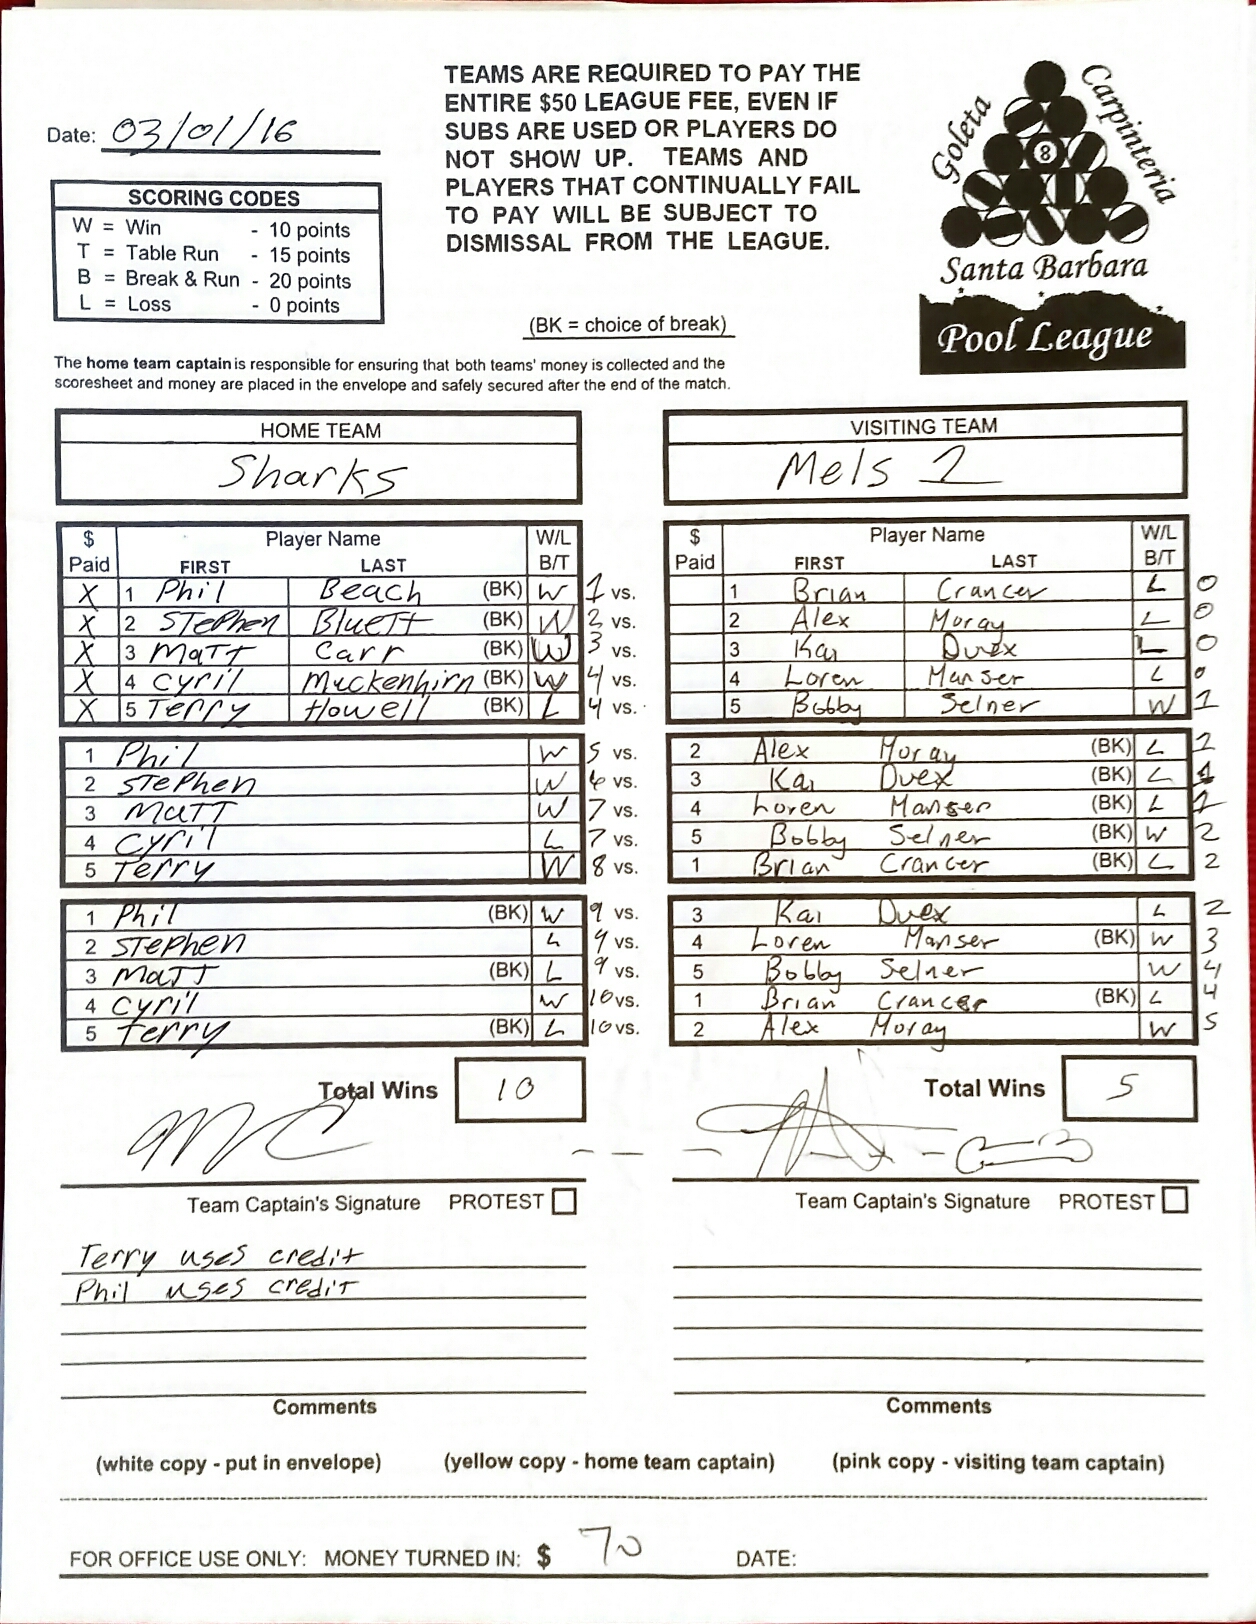 Date: 03/01/16
TEAMS ARE REQUIRED TO PAY THE
ENTIRE $50 LEAGUE FEE, EVEN IF
SUBS ARE USED OR PLAYERS DO
NOT SHOW UP. TEAMS AND
PLAYERS THAT CONTINUALLY FAIL
TO PAY WILL BE SUBJECT TO
DISMISSAL FROM THE LEAGUE.
Goleta
Carpinteria
8
Santa Barbara
Pool League
SCORING CODES
W = Win - 10 points
T = Table Run - 15 points
B = Break & Run - 20 points
L = Loss - 0 points
(BK = choice of break)
The home team captain is responsible for ensuring that both teams' money is collected and the
scoresheet and money are placed in the envelope and safely secured after the end of the match.
HOME TEAM VISITING TEAM
Sharks Mels 1
$ Paid Player Name FIRST LAST W/L B/T $ Paid Player Name FIRST LAST W/L B/T
X 1 Phil Beach (BK) W 1 vs. 1 Brian Crancer L 0
X 2 Stephen Bluett (BK) W 2 vs. 2 Alex Moray L 0
X 3 Matt Carr (BK) W 3 vs. 3 Kai Duex L 0
X 4 Cyril Muckenhirn (BK) W 4 vs. 4 Loren Manser L 0
X 5 Terry Howell (BK) L 4 vs. 5 Bobby Selner W 1
1 Phil W 5 vs. 2 Alex Moray (BK) L 1
2 Stephen W 6 vs. 3 Kai Duex (BK) L 1
3 Matt W 7 vs. 4 Loren Manser (BK) L 1
4 Cyril L 7 vs. 5 Bobby Selner (BK) W 2
5 Terry W 8 vs. 1 Brian Crancer (BK) L 2
1 Phil (BK) W 9 vs. 3 Kai Duex L 2
2 Stephen L 9 vs. 4 Loren Manser (BK) W 3
3 Matt (BK) L 9 vs. 5 Bobby Selner W 4
4 Cyril W 10 vs. 1 Brian Crancer (BK) L 4
5 Terry (BK) L 10 vs. 2 Alex Moray W 5
Total Wins 10 Total Wins 5
Team Captain's Signature PROTEST Team Captain's Signature PROTEST
Terry uses credit
Phil uses credit
Comments Comments
(white copy - put in envelope) (yellow copy - home team captain) (pink copy - visiting team captain)
FOR OFFICE USE ONLY: MONEY TURNED IN: $ 70 DATE: